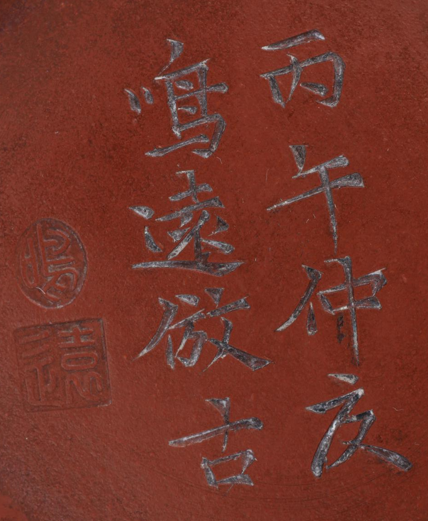 丙午仲夏
鳴遠倣古
鳴
遠